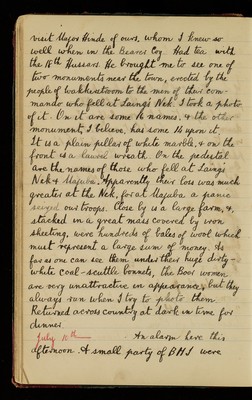 visit Major Hinde of ours, whom I knew so
well when in the Bearer Coy. Had tea with
the 18th Hussars. He brought me to see one of
two monuments near the town, erected by the
people of Wakkerstroom to the men of their com-
mando who fell at Laing's Nek. I took a photo
of it. On it are some 16 names, & the other
monument, I believe, has some 16 upon it.
It is a plain pillar of white marble, & on the
front is a laurel wreath. On the pedestal
are the names of those who fell at Laings
Nek & Majuba. Apparently their loss was much
greater at the Nek, for at Majuba, a panic
seized our troops. Close by is a large farm, &,
stacked in a great mass covered by iron
sheeting, were hundreds of bales of wool which
must represent a large sum of money. As
far as one can see them under their huge dirty-
white coal-scuttle bonnets, the Boer women
are very unattractive in appearance, but they
always run when I try to photo them.
Returned across country at dark in time for
dinner.
July 10th An alarm here this
afternoon. A small party of BMI were